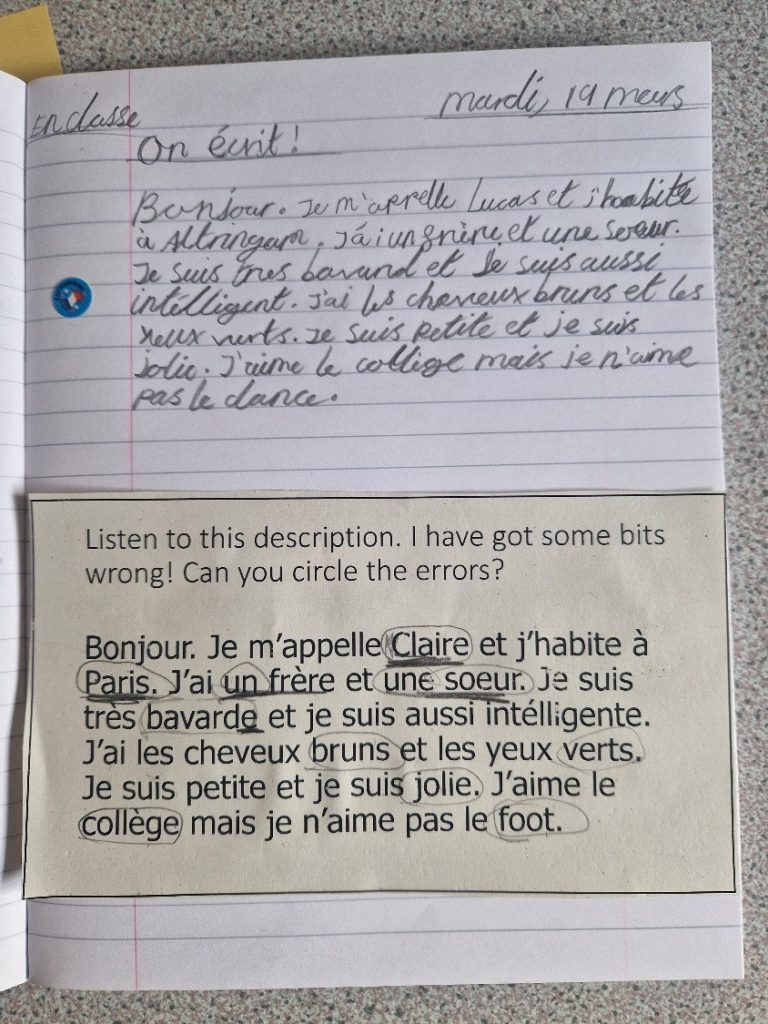 En classe
mardi, 19 mars
On écrit!
Bonjour. Je m'appelle Lucas et j'habite
à Altringam. J'ái un frère et une soeur.
Je suis très bavand et Je suis aussi
intélligent. J'ai les cheveux bruns et les
yeux verts. Je suis petite et je suis
jolie. J'aime le collège mais je n'aime
pas le dance.
Listen to this description. I have got some bits
wrong! Can you circle the errors?
Bonjour. Je m'appelle Claire et j'habite à
Paris. J'ai un frère et une soeur. Je suis
très bavarde et je suis aussi intélligente.
J'ai les cheveux bruns et les yeux verts.
Je suis petite et je suis jolie. J'aime le
collège mais je n'aime pas le foot.